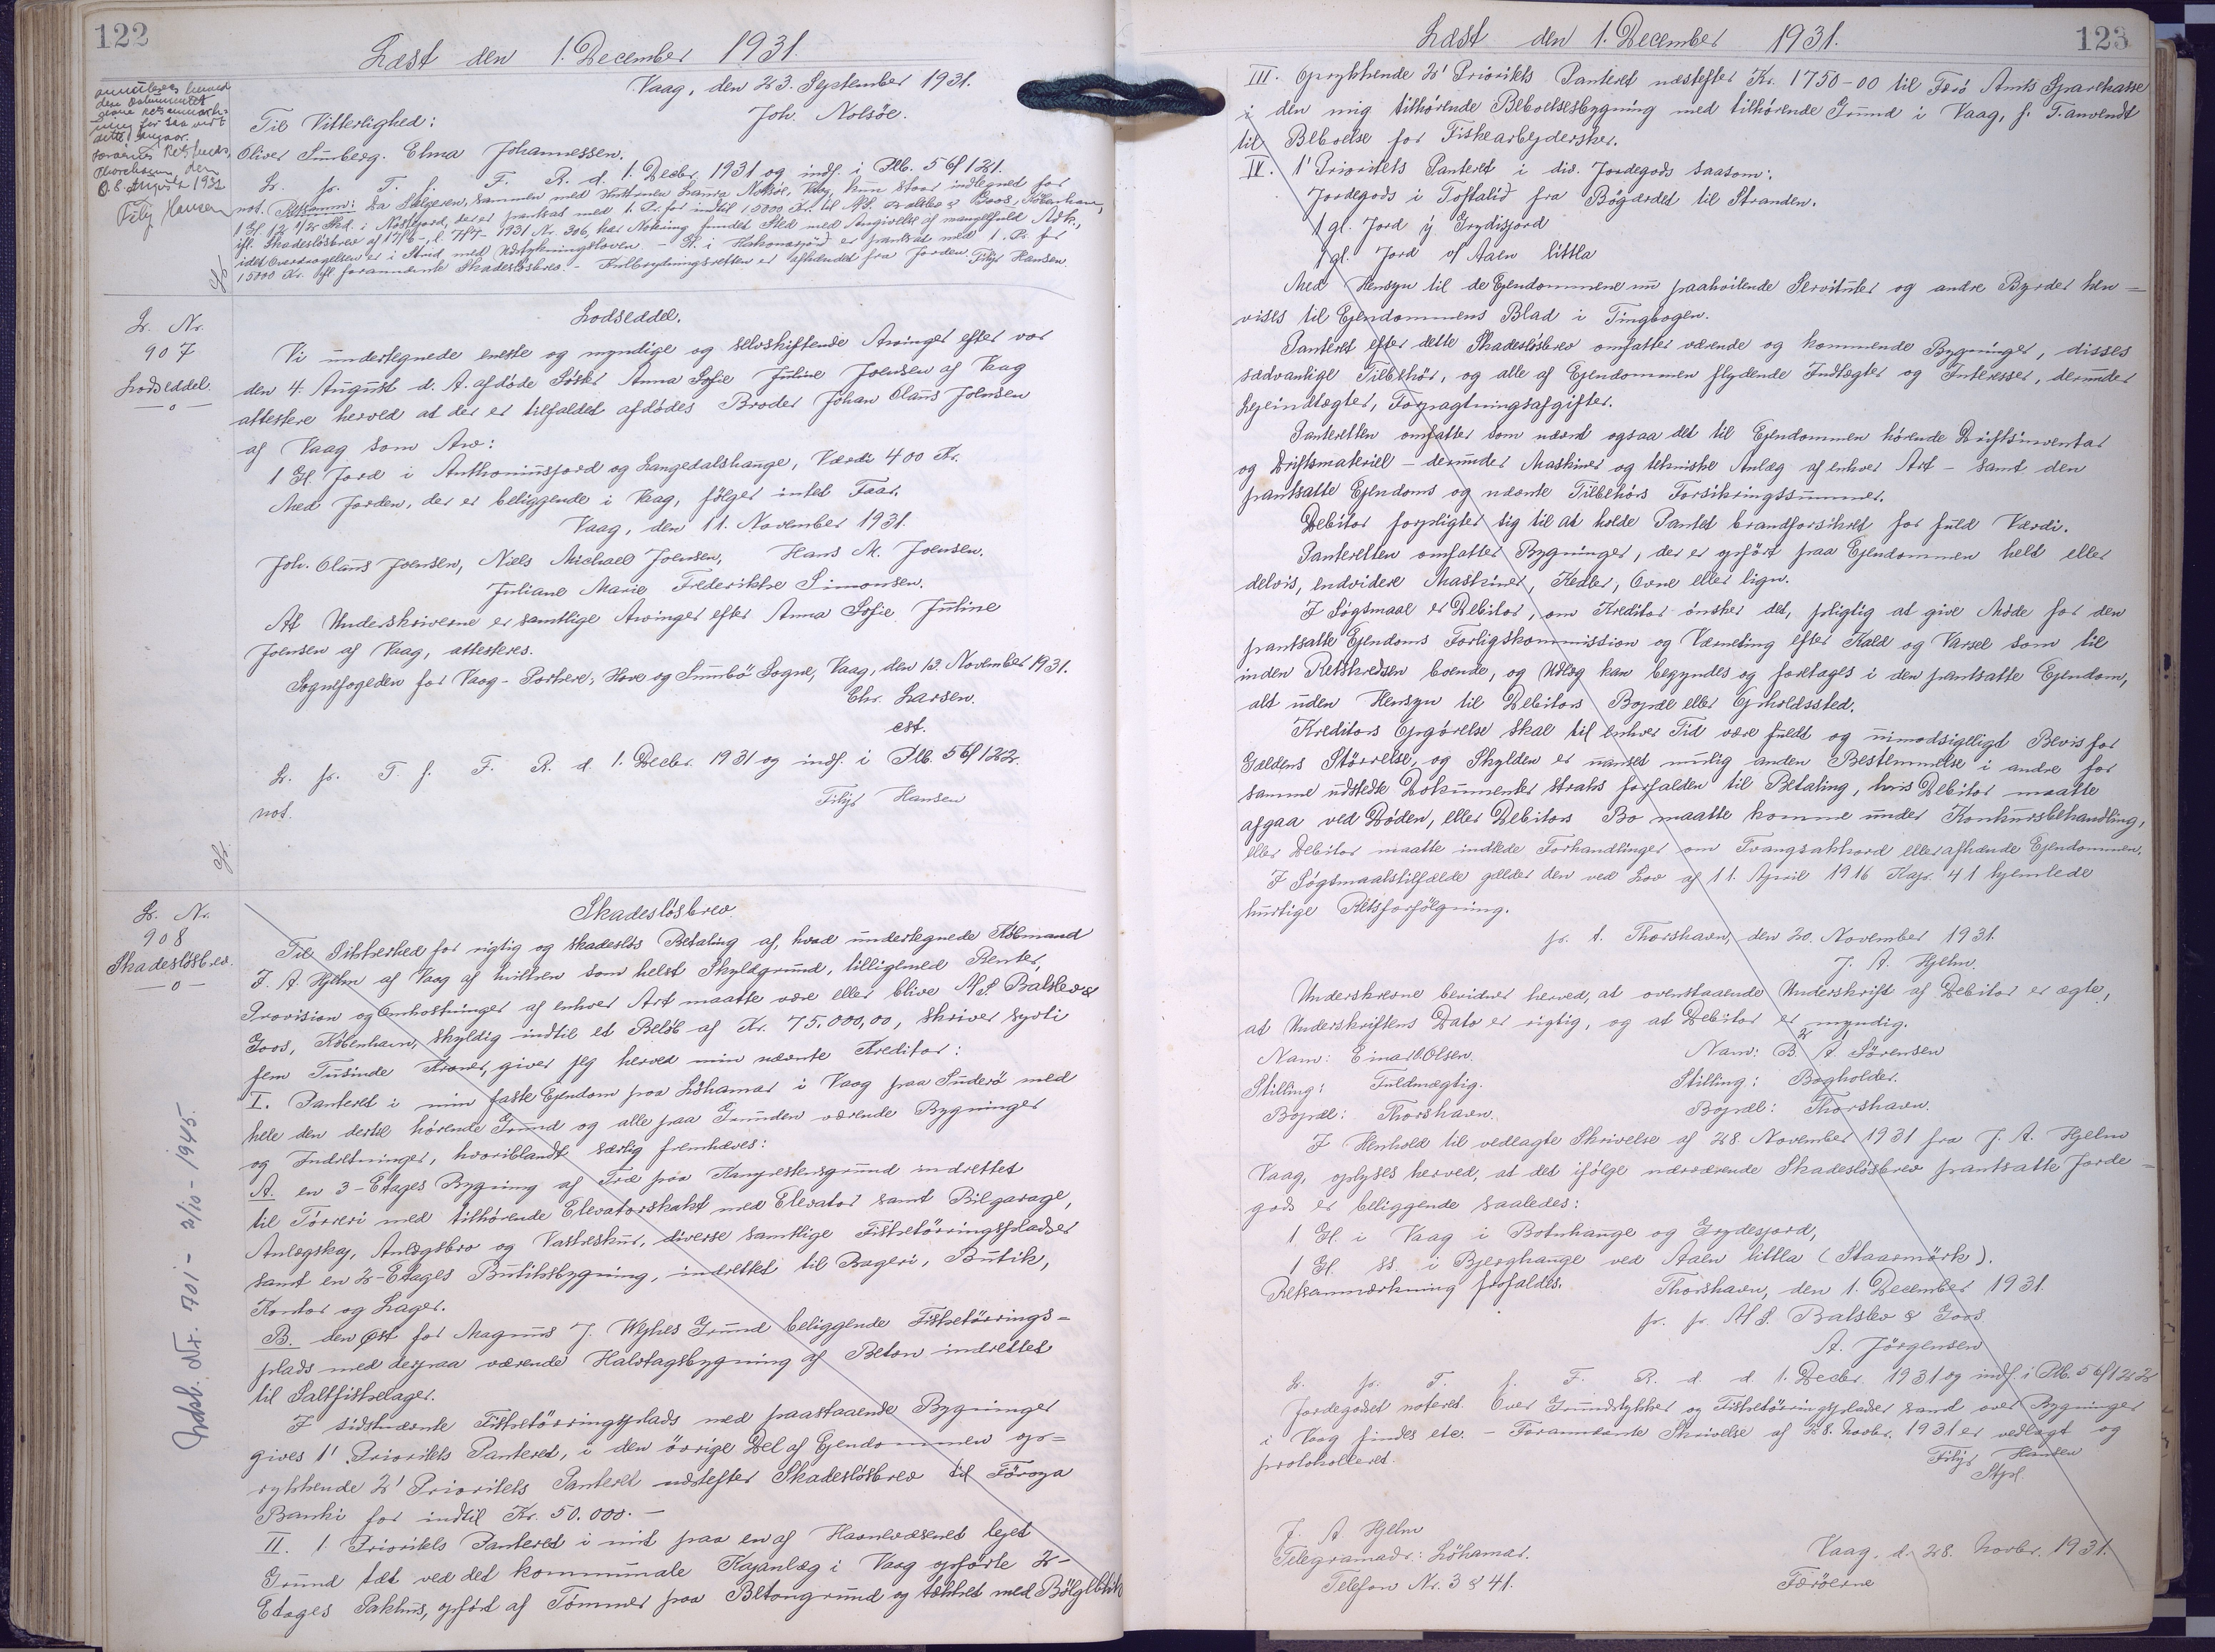 122
Læst den 1. December 1931.
Vaag, den 23. September 1931.
Joh. Nolsøe.
annulleres herved
den Dokumentet
givne Retsanmærk-
ning for saa vidt
dette angaar.
Færøernes Retskreds,
Thorshavn, den
8. August 1932
Filip Hansen
Til Vitterlighed:
Oliver Sumberg. Elma Johannessen.
L. pr. T. f. F. R. d. 1. Decbr. 1931 og indf. i Ptb. 56 f 121.
not. Retsanm: Da Sælgeren, sammen med Hustruen Laura Nolsøe, Vaag, kun staar indtegnet for
1 Gl. 12 1/25 Skd. i Nøstfjord, der er pantsat med 1. Pr. for indtil 15000 Kr. til N.S. Balslev & Goos, København,
ifl. Skadesløsbrev af 17/6-, l. 7/7- 1931 Nr. 306, har Notering fundet Sted med Angivelse af mangelfuld Adk.,
idet Overdragelsen er i Strid med Udstykningsloven. - St. i Hakonarjord er pantsat med 1. Pr. for
15000 Kr. ifl. forannævnte Skadesløsbrev. - Kulbrydningsretten er afhændet fra Jorden. Filip Hansen.
L. Nr.
907
Lodseddel
—o—
Lodseddel.
Vi undertegnede eneste og myndige og selvskiftende Arvinger efter vor
den 4. August d. A. afdøde Søster Anna Sofie Juline Joensen af Vaag
attestere herved at der er tilfaldet afdødes Broder Johan Olaus Joensen
af Vaag som Arv:
1 Gl. Jord i Anthoniusjord og Langedalshauge, Værdi 400 Kr.
Med Jorden, der er beliggende i Vaag, følger intet Faar.
Vaag, den 11. November 1931.
Joh. Olaus Joensen, Niels Michael Joensen, Hans M. Joensen.
Juliane Marie Frederikke Simonsen.
At Underskriverne er samtlige Arvinger efter Anna Sofie Juline
Joensen af Vaag, attesteres.
Sognefogeden for Vaag- Porkere, Hove og Sumbø Sogne, Vaag, den 13. November 1931.
Chr. Larsen.
cst.
L. pr. T. f. F. R. d. 1. Decbr. 1931 og indf. i Ptb. 56 f 122.
not.
Filip Hansen
L. Nr.
908
Skadesløsbrev.
—o—
Skadesløsbrev.
Til Sikkerhed for rigtig og skadesløs Betaling af, hvad undertegnede Købmand
J. A. Hjelm af Vaag af hvilken som helst Skyldgrund, tilligemed Renter,
Provision og Omkostninger af enhver Art maatte være eller blive N.S. Balslev &
Goos, København, skyldig indtil et Beløb af Kr. 75.000,00, skriver syvti
fem Tusinde Kroner, giver jeg herved min nævnte Kreditor:
I. Panteret i min faste Ejendom paa Løhamar i Vaag paa Suderø med
hele den dertil hørende Grund og alle paa Grunden værende Bygninger
og Indretninger, hvoriblandt særlig fremhæves:
A. en 3-Etages Bygning af Træ paa Kampestensgrund indrettet
til Tørreri med tilhørende Elevatorskakt med Elevator samt Bilgarage,
Anlægskaj, Anlægsbro og Vaskeskur, diverse samtlige Fisketørringspladser
samt en 2-Etages Butiksbygning, indrettet til Bageri, Butik,
Kontor og Lager.
B. den Øst for Magnus J. Weihes Grund beliggende Fisketørrings-
plads med derpaa værende Halvtagsbygning af Beton indrettet
til Saltfiskelager.
I sidstnævnte Fisketørringsplads med paastaaende Bygninger
gives 1' Prioritets Panteret, i den øvrige Del af Ejendommen op-
rykkende 2' Prioritets Panteret næstefter Skadesløsbrev til Føroya
Banki for indtil Kr. 50.000.-
II. 1 Prioritets Panteret i mit paa en af Havnevæsenet lejet
Grund tæt ved det kommunale Kajanlæg i Vaag opførte 2-
Etages Pakhus, opført af Tømmer paa Betongrund og tækket med Bølgeblik
Indsl. Nr. 701 - 2/10 - 1945.
123
Læst den 1. December 1931.
III. Oprykkende 2' Prioritets Panteret næstefter Kr. 1750-00 til Færø Amts Sparekasse
i den mig tilhørende Beboelsesbygning med tilhørende Grund i Vaag, f. T. anvendt
til Beboelse for Fiskearbejdersker.
IV. 1' Prioritets Panteret i div. Jordegods saasom:
Jordegods i Toftalid fra Bøgærdet til Stranden.
1 gl. Jord y Grydisjord
1 gl. Jord vf Aaen littla
Med Hensyn til de Ejendommene nu paahvilende Servitutter og andre Byrder hen-
vises til Ejendommens Blad i Tingbogen.
Panteret efter dette Skadesløsbrev omfatter værende og kommende Bygninger, disses
sædvanlige Tilbehør, og alle af Ejendommen flydende Indtægter og Interesser, derunder
Lejeindtægter, Forpagtningsafgifter.
Panteretten omfatter som nævnt ogsaa det til Ejendommen hørende Driftsinventar
og Driftsmateriel - derunder Maskiner og tekniske Anlæg af enhver Art - samt den
pantsatte Ejendoms og nævnte Tilbehørs Forsikringssummer.
Debitor forpligter sig til at holde Pantet brandforsikret for fuld Værdi.
Panteretten omfatter Bygninger, der er opført paa Ejendommen helt eller
delvis, endvidere Maskiner, Kedler, Ovne eller lign.
I Søgsmaal er Debitor, om Kreditor ønsker det, pligtig at give Møde for den
pantsatte Ejendoms Forligskommission og Værneting efter Kald og Varsel som til
inden Retskredsen boende, og Udlæg kan begyndes og foretages i den pantsatte Ejendom,
alt uden Hensyn til Debitors Bopæl eller Opholdssted.
Kreditors Opgørelse skal til enhver Tid være fuldt og uimodsigeligt Bevis for
Gældens Størrelse, og Skylden er uanset mulig anden Bestemmelse i andre for
samme udstedte Dokumenter straks forfalden til Betaling, hvis Debitor maatte
afgaa ved Døden, eller Debitors Bo maatte komme under Konkursbehandling,
eller Debitor maatte indlede Forhandlinger om Tvangsakkord eller afhænde Ejendommen.
I Søgsmaalstilfælde gælder den ved Lov af 11. April 1916 Kap. 41 hjemlede
hurtige Retsforfølgning.
p. t. Thorshavn, den 20. November 1931.
J. A. Hjelm.
Underskrevne bevidner herved, at ovenstaaende Underskrift af Debitor er ægte,
at Underskriftens Dato er rigtig, og at Debitor er myndig.
Navn: Einar O. Olsen. Navn: B. A. Sørensen
Stilling: Fuldmægtig. Stilling: Bogholder.
Bopæl: Thorshavn. Bopæl: Thorshavn.
I Henhold til vedlagte Skrivelse af 28. November 1931 fra J. A. Hjelm
Vaag, oplyses herved, at det ifølge nærværende Skadesløsbrev pantsatte Jorde-
gods er beliggende saaledes:
1 Gl. i Vaag i Botnhauge og Grydesjord,
1 Gl. ss. i Bjerghauge ved Aaen littla (Staarmørk).
Retsanmærkning frafaldes. Thorshavn, den 1. December 1931.
pr. pr. N.S. Balslev & Goos.
A. Jørgensen
L. pr. T. f. F. R. d. d. 1. Decbr. 1931 og indf. i Ptb. 56 f 122
Jordegodset noteret. Over Grundstykker og Fisketørringspladser samt over Bygninger
i Vaag findes etc. - Forannævnte Skrivelse af 28. Novbr. 1931 er vedlagt og
protokolleret.
Filip Hansen
Stpl.
J. A. Hjelm
Telegramadr.: Løhamar.
Telefon Nr. 3 & 41.
Vaag, d. 28. Novbr. 1931.
Færøerne